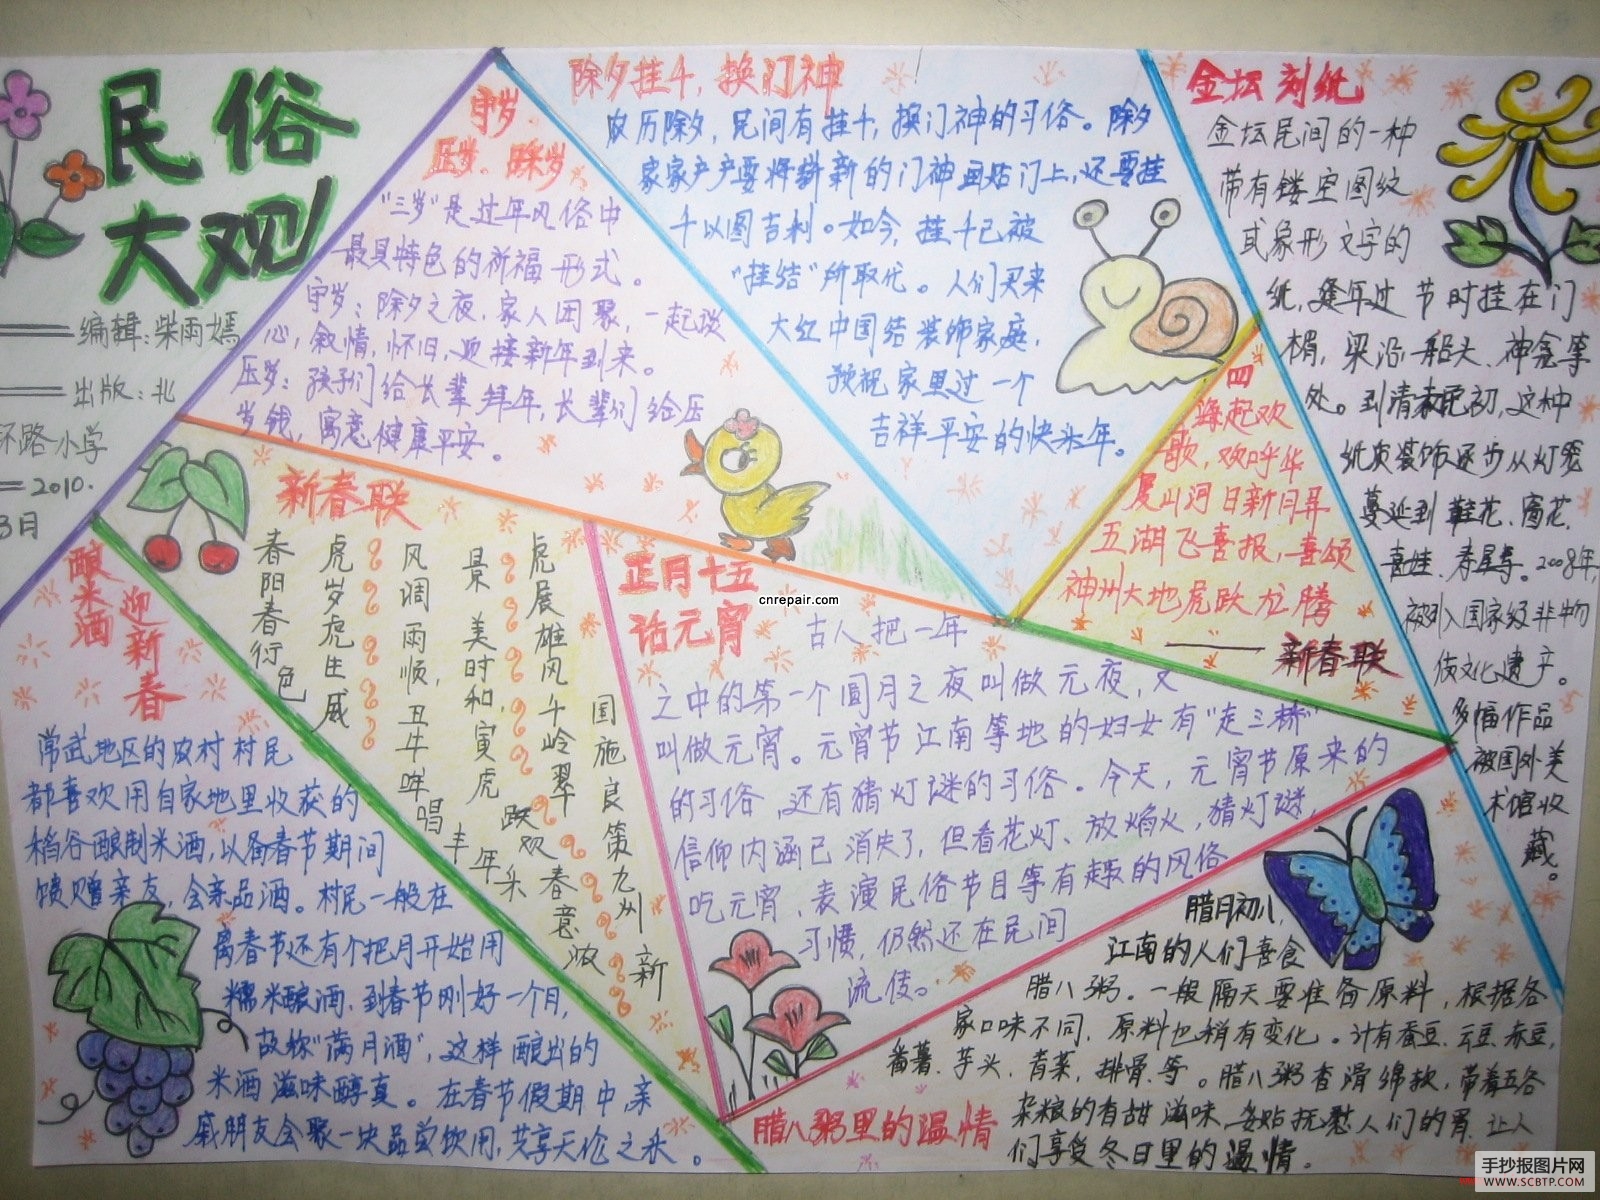 民俗
大观
编辑:柴雨嫣
出版:北
环路小学
2010.
3月
守岁.
压岁.踩岁
"三岁"是过年风俗中
最具特色的祈福形式。
守岁:除夕之夜,家人团聚,一起谈
心,叙情,怀旧,迎接新年到来。
压岁:孩子们给长辈拜年,长辈们给压
岁钱,寓意健康平安。
除夕挂千,换门神
农历除夕,民间有挂千,换门神的习俗。除夕
家家户户要将崭新的门神画贴门上,还要挂
千以图吉利。如今,挂千已被
"挂结"所取代。人们买来
大红中国结装饰家庭,
预祝家里过一个
吉祥平安的快乐年。
金坛刻纸
金坛民间的一种
带有镂空图纹
或象形文字的
纸,逢年过节时挂在门
楣,梁沿,船头、神龛等
处。到清末民初,这种
纸质装饰逐步从灯笼
蔓延到鞋花、窗花、
喜娃、寿屋等。2008年,
被列入国家级非物
质文化遗产。
多幅作品
被国外美
术馆收
藏。
四
海起欢
歌,欢呼华
夏山河日新月异
五湖飞喜报,喜颂
神州大地虎跃龙腾
——新春联
新春联
春阳春行色
虎岁虎生威
风调雨顺,丑牛哞唱丰年
景美时和,寅虎跃欢乐
虎展雄风千岭翠春意浓
国施良策九州新
正月十五
话元宵
古人把一年
之中的第一个圆月之夜叫做元夜,又
叫做元宵。元宵节江南等地的妇女有"走三桥"
的习俗,还有猜灯谜的习俗。今天,元宵节原来的
信仰内涵已消失了,但看花灯、放焰火,猜灯谜,
吃元宵,表演民俗节目等有趣的风俗
习惯,仍然还在民间
流传。
酿米酒
迎新春
常武地区的农村村民
都喜欢用自家地里收获的
稻谷酿制米酒,以备春节期间
馈赠亲友,会亲品酒。村民一般在
离春节还有个把月开始用
糯米酿酒,到春节刚好一个月,
故称"满月酒",这样酿出的
米酒滋味醇真。在春节假期中,亲
戚朋友会聚一块品尝饮用,共享天伦之乐。
腊八粥里的温情
腊月初八,
江南的人们喜食
腊八粥。一般隔天要准备原料,根据各
家口味不同,原料也稍有变化。计有蚕豆、云豆、赤豆,
番薯、芋头,青菜,排骨、等。腊八粥香滑绵软,带着五谷
杂粮的香甜滋味,妥贴抚慰人们的胃,让人
们享受冬日里的温情。
cnrepair.com
手抄报图片网
WWW.SCBTP.COM